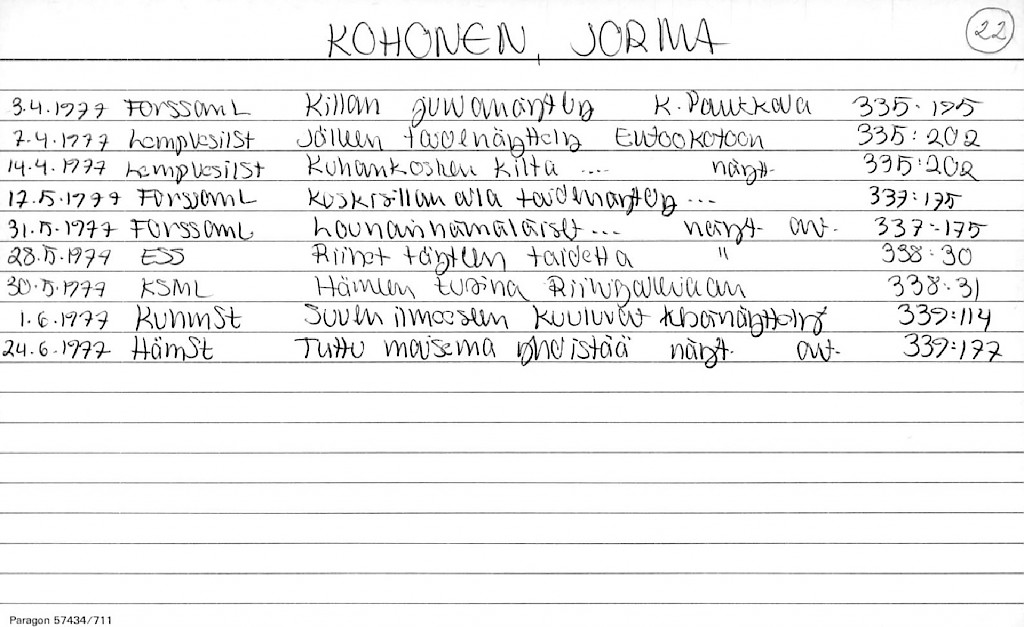 KOHONEN, JORMA 22
3.4.1977 ForssamL Killan juwanäyttely K. Paukkala 335:195
7.4.1977 LempVesilSt Jälleen taidenäyttely 335:202
14.4.1977 LempVesilSt Kuhankosken Kilta .... näyt. 335:202
17.5.1977 ForssamL Koskisillan alla taidenäyttely ... 337:175
31.5.1977 ForssamL Lounaishämäläiset ... näyt. av. 337:175
28.5.1977 ESS Riihet täyteen taidetta " 338:30
30.5.1977 KSML Hämeen tusina Riihigalleriaan 338:31
1.6.1977 KuhmSt Suven ilmeeseen kuuluvat 339:114
24.6.1977 HämSt Tuttu maisema yhdistää näyt. av. 339:177
Paragon 57434/711